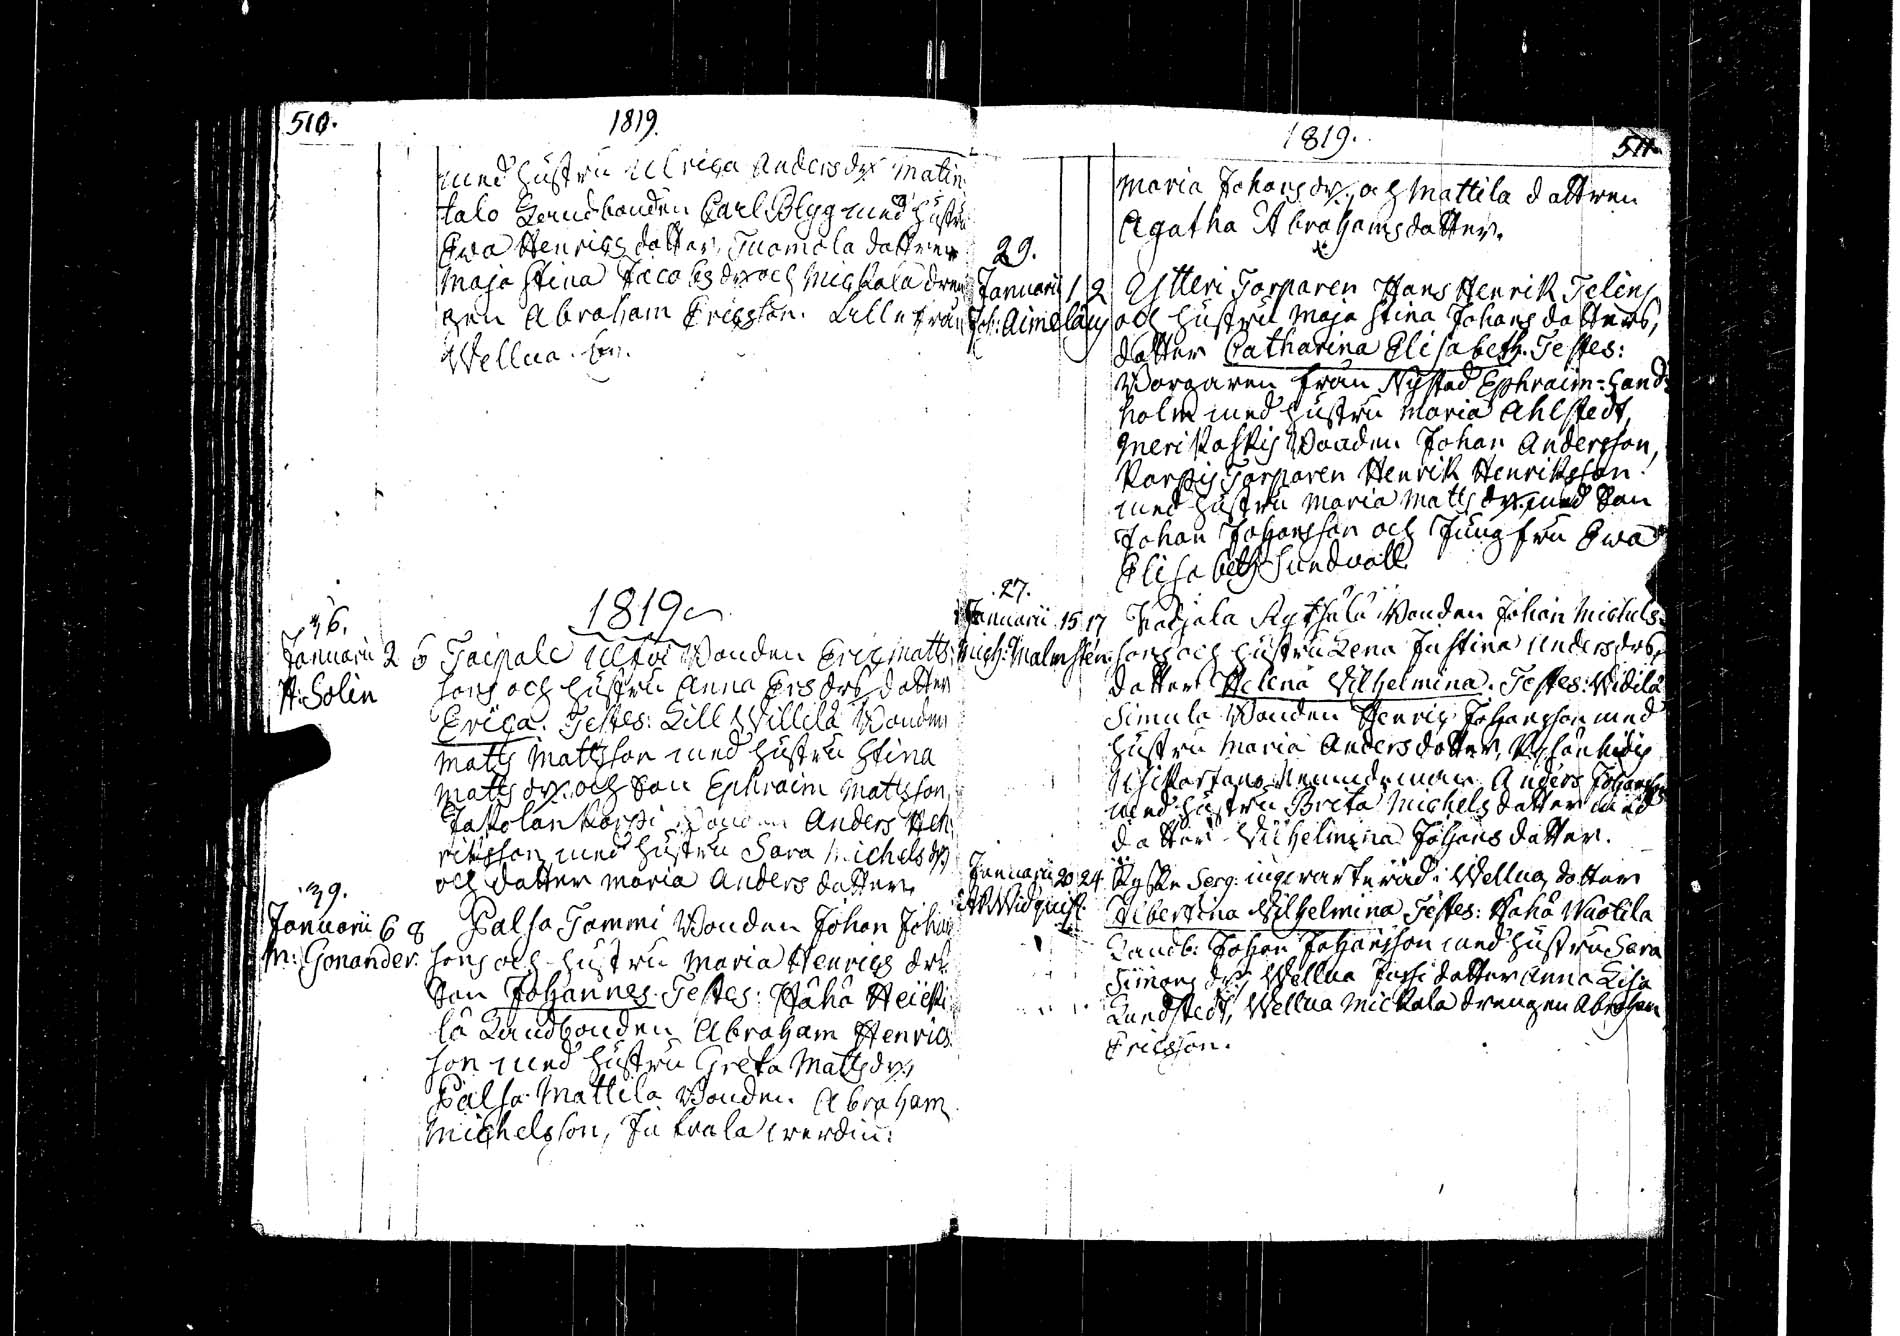 510.
1819.
med hustru Ulrica Anders dr Matin
talo Landbonden Carl Blyg med hustru
Ewa Henrics dotter, Tuomola dottren
Maja Stina Jacobs dr och Mickala dren
gen Abraham Ericsson. Lille från
Wellua.
1819
36.
Januarii 2 6 Taipale Bonden Eric Matts
H: Solin
sons och hustru Anna Ers drs dotter
Erica. Testes: Lill Willilä Bonden
Matts Mattsson med hustru Stina
Matts dr. och Son Ephraim Mattsson,
Jakolan Karpi Bonden Anders Hen
ricsson med hustru Sara Michels dr
och dotter Maria Anders dotter.
39.
Januarii 6 8 Palsa Tommi Bonden Johan Johan
M: Gonander. sons och hustru Maria Henrics drs
Son Johannes. Testes: Hähä Heicki
lä Landbonden Abraham Henrics
son med hustru Greta Matts dr,
Palsa Mattila Bonden Abraham
Michelsson,
1819.
511.
Maria Johans dr, och Mattila dottren
Agatha Abrahams dotter.
29.
Januarii 1 2 Torparen Hans Henrik Telens
Joh: Aimelæus och hustru Maja Stina Johans dotters,
dotter Catharina Elisabeth. Testes:
Borgaren från Nystad Ephraim Sand
holm med hustru Maria Ahlstedt,
Merikoskis Bonden Johan Andersson,
Karpis Torparen Henrik Henriksson
med hustru Maria Matts dr, med Son
Johan Johansson och Jungfru Ewa
Elisabeth Sundvall.
27.
Januarii 15 17 Bonden Johan Michels
Mich: Malmsten. sons och hustru Lena Justina Anders drs,
dotter Helena Wilhelmina. Testes: Widilä
Simula Bonden Henric Johansson med
hustru Maria Anders dotter,
Nemndeman Anders Johansson
med hustru Brita Michels dotter med
dotter Wilhelmina Johans dotter.
Januarii 20 24 Ryske Serg: ingvarterad i Wellua, dotter
Widquist
Albertina Wilhelmina Testes: Hähä Wuotila
Landb: Johan Johansson med hustru Sara
Simons dr, Wellua Jussi dotter Anna Lisa
Lundstedt, Wellua Mickala drengen Abraham
Ericsson.